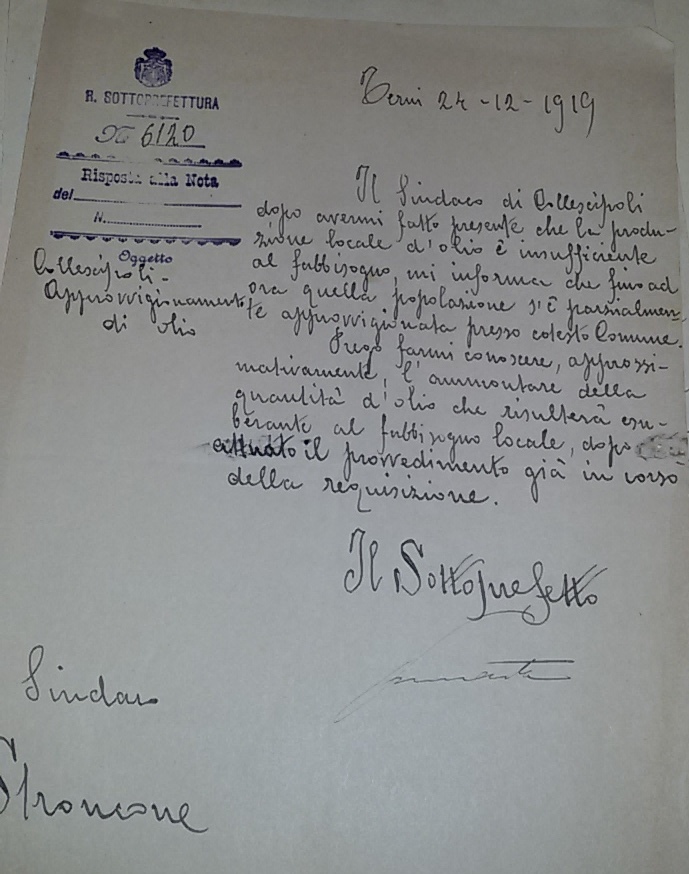 R. SOTTOPREFETTURA
N° 6120
Risposta alla Nota
del
N.
Oggetto
Collescipoli -
Approvvigionamento
di olio
Terni 24-12-1919
Il Sindaco di Collescipoli
dopo avermi fatto presente che la produ-
zione locale d'olio è insufficiente
al fabbisogno, mi informa che fino ad
ora quella popolazione s'è parzialmen-
te approvvigionata presso cotesto Comune.
Prego farmi conoscere, approssi-
mativamente, l'ammontare della
quantità d'olio che risulterà esu-
berante al fabbisogno locale, dopo
attuato il provvedimento già in corso
della requisizione.
Il Sottoprefetto
Sindaco
Stroncone